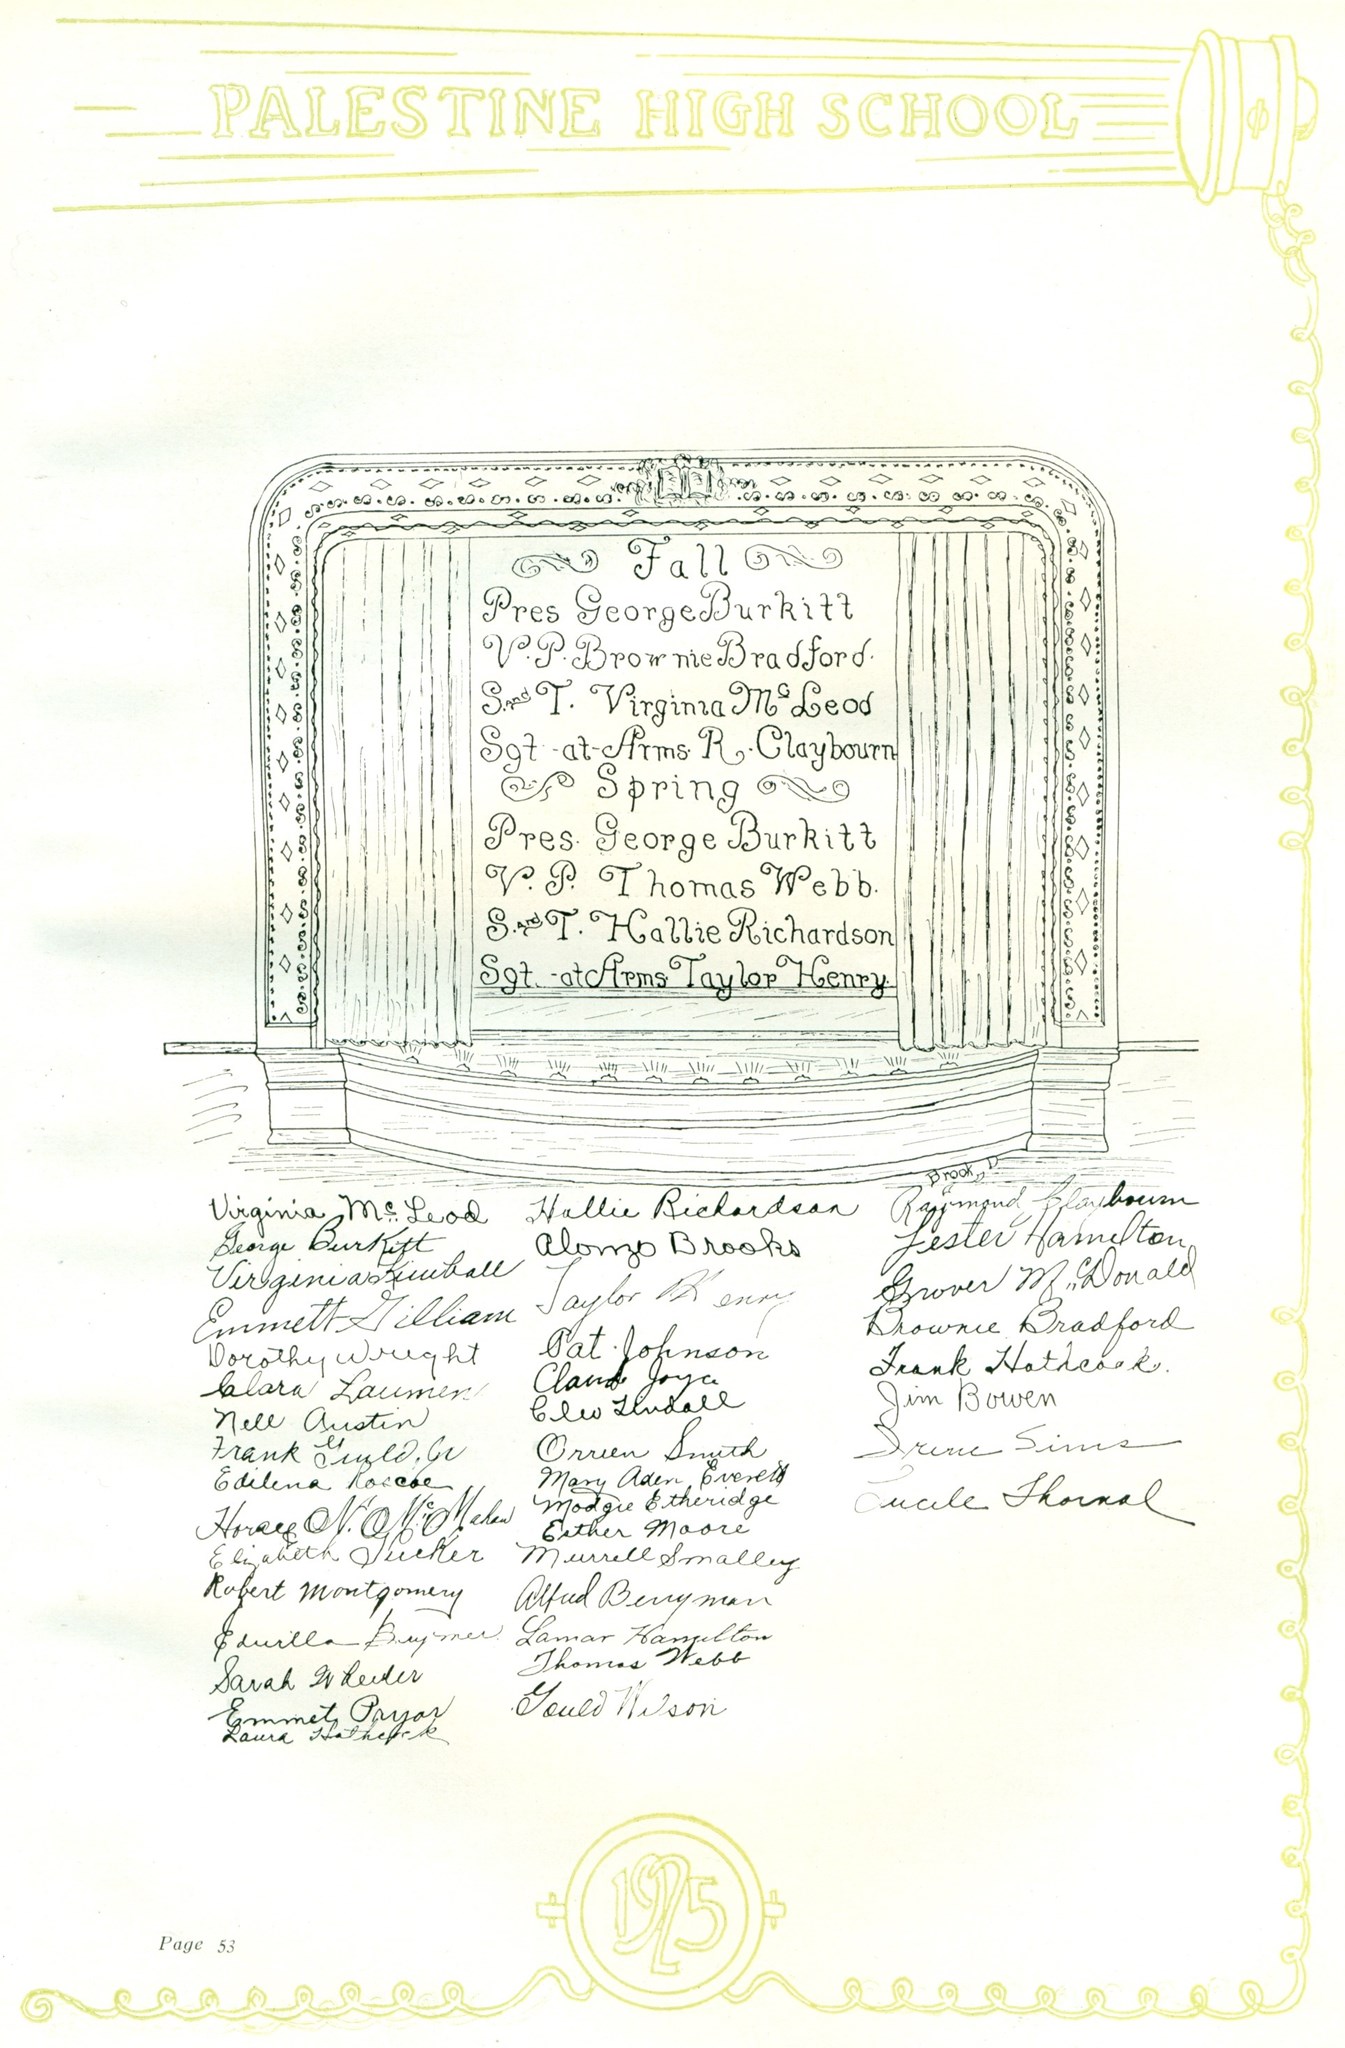 PALESTINE HIGH SCHOOL
Fall
Pres George Burkitt
V. P. Brownie Bradford.
S. and T. Virginia McLeod
Sgt-at-Arms R. Claybourn
Spring
Pres. George Burkitt
V. P. Thomas Webb.
S. and T. Hallie Richardson
Sgt.-at Arms Taylor Henry.
Virginia McLeod
George Burkitt
Virginia Kimball
Emmett Gilliam
Dorothy Wright
Clara Laumen
Nell Austin
Frank Gould, Jr
Edilena Roscoe
Horace N. McMahan
Elizabeth Tucker
Robert Montgomery
Sarah Wheeler
Emmet Pryor
Laura Hathcock
Hallie Richardson
Alonzo Brooks
Taylor Henry
Pat Johnson
Claud Joyce
Cleo Tindall
Orreen Smith
Mary Aden Everett
Modgie Etheridge
Esther Moore
Murrell Smalley
Alfred Berryman
Lamar Hamilton
Thomas Webb
Gould Wilson
Brook, D
Raymond Claybourn
Lester Hamelton
Grover McDonald
Brownie Bradford
Frank Hathcock.
Jim Bowen
Irene Sims
Lucile Thornal
1925
Page 53